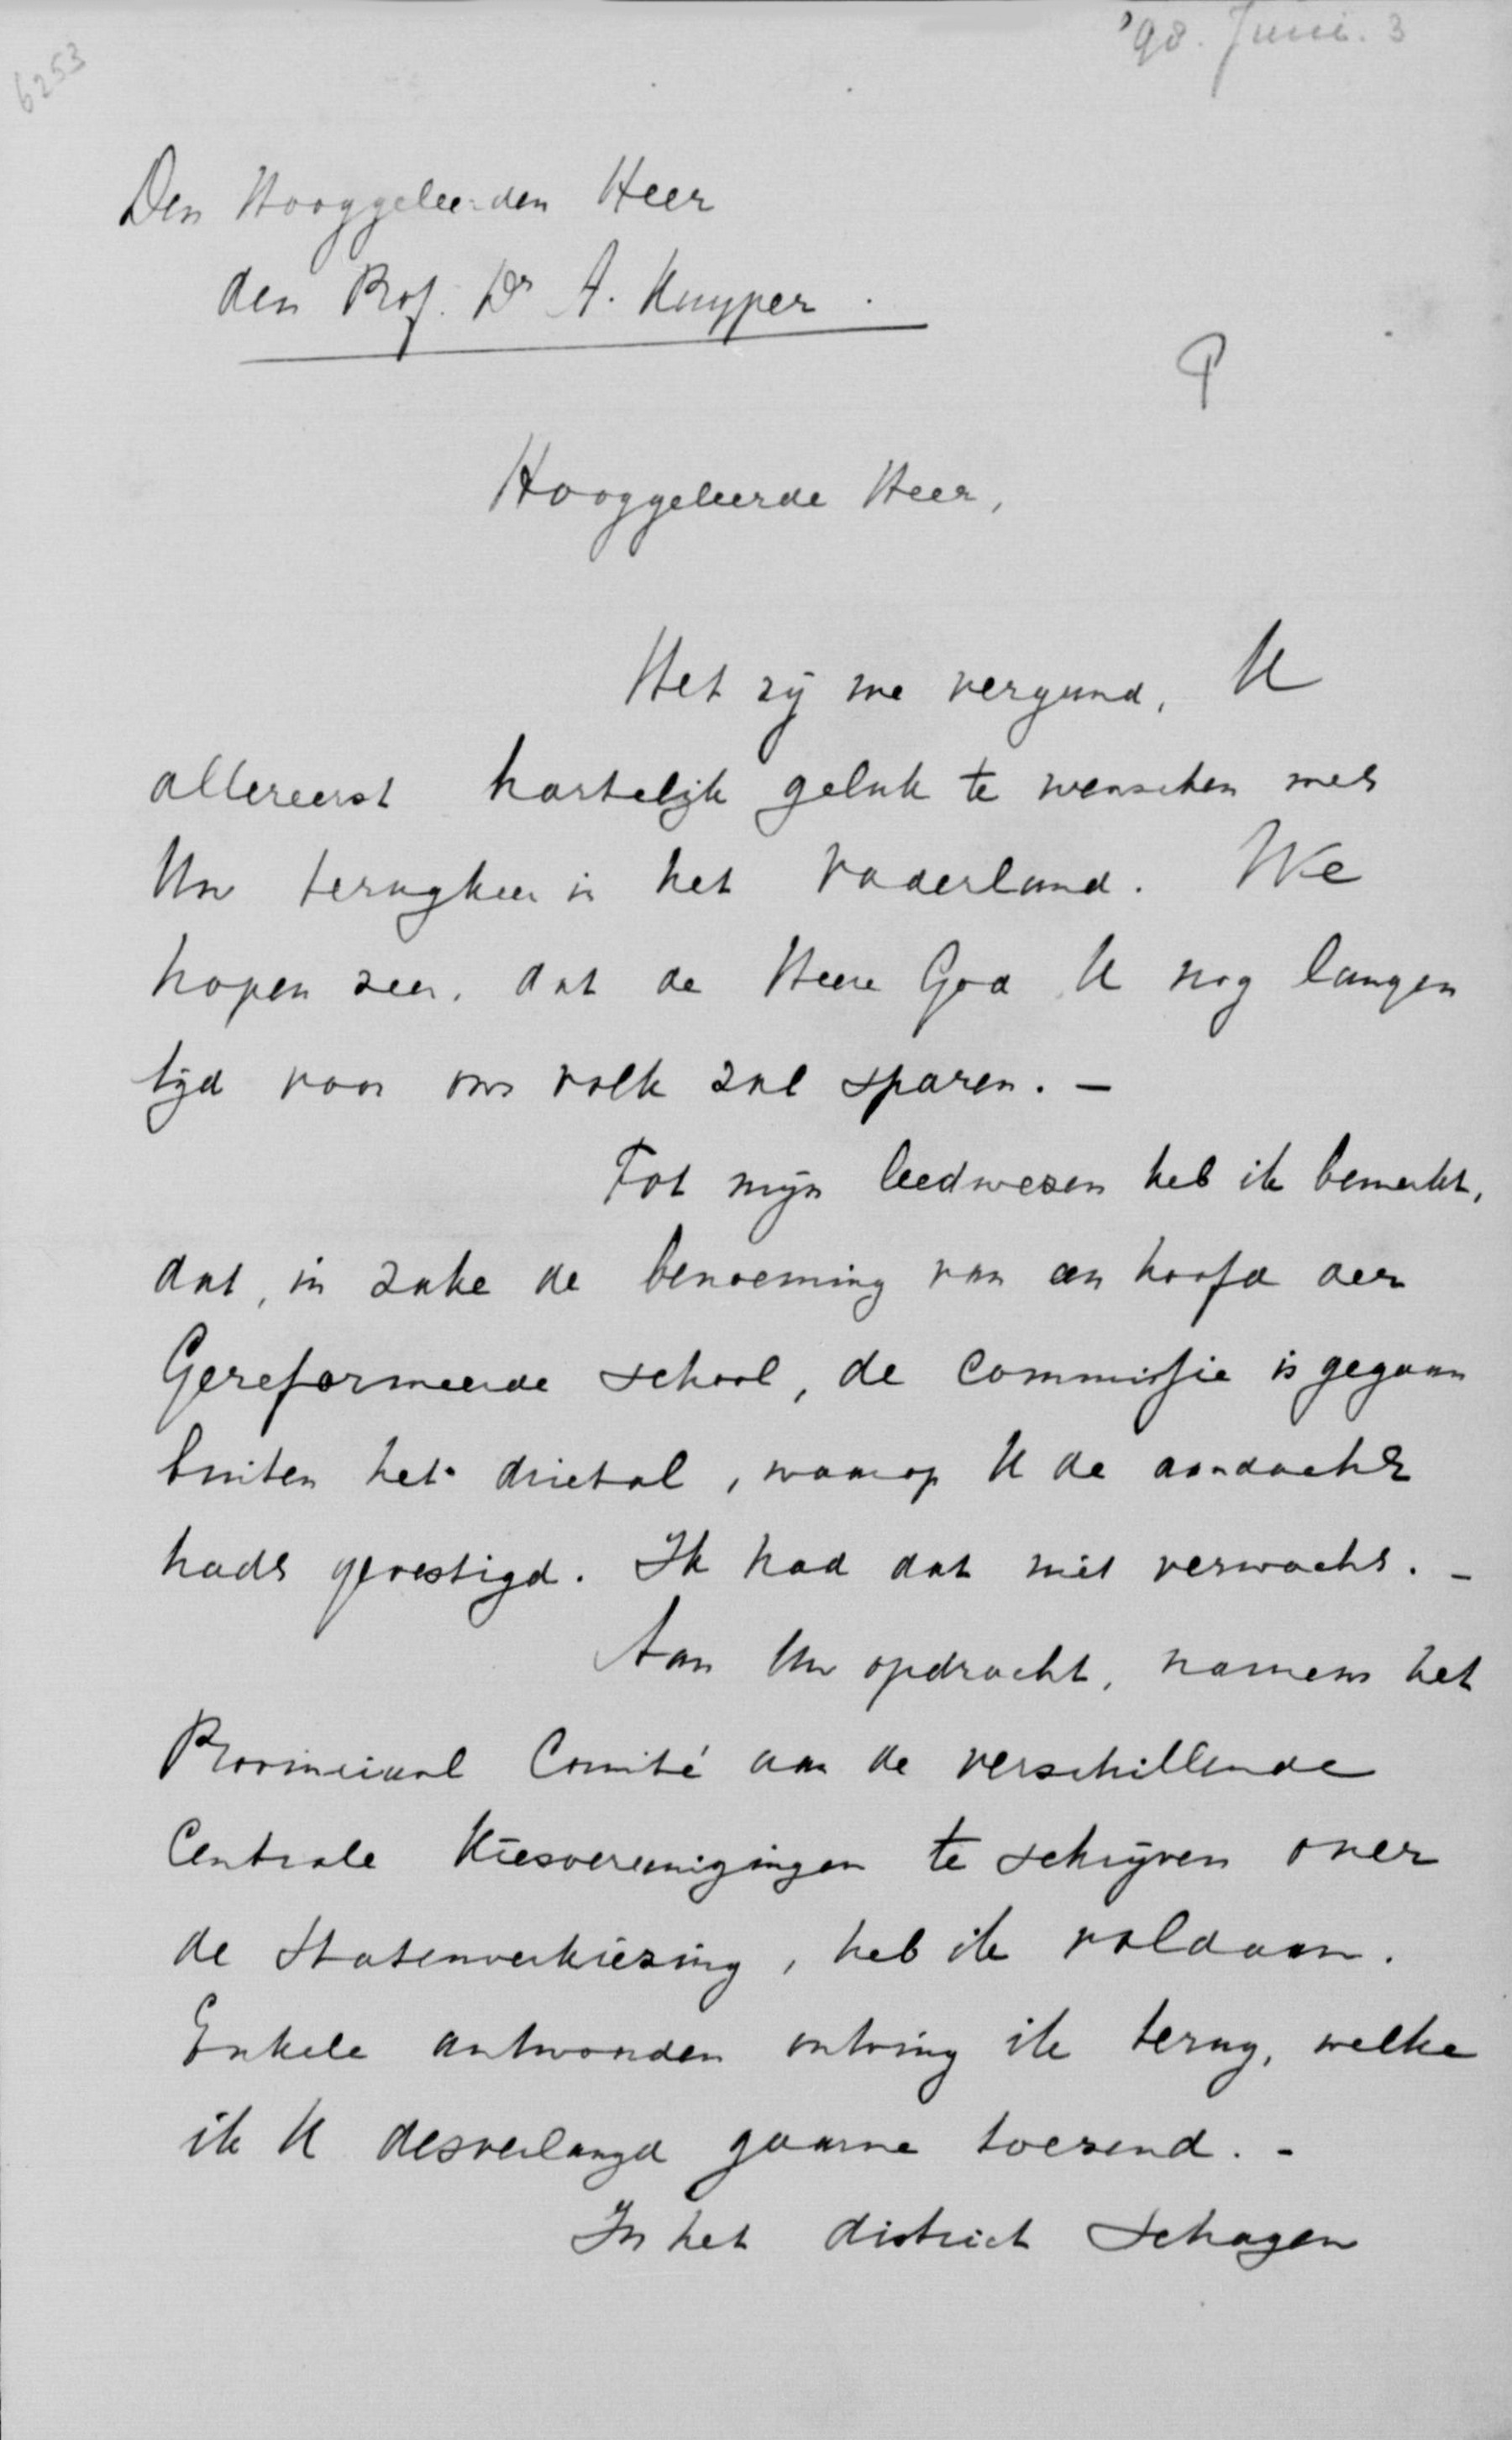 6253
'98. Juni. 3
Den Hooggeleerden Heer
den Prof. Dr A. Kuyper.
P
Hooggeleerde Heer,
Het zij me vergund, U
allereerst hartelijk geluk te wenschen met
Uw terugkeer in het vaderland. We
hopen zeer, dat de Heere God U nog langen
tijd voor ons volk zal sparen. —
Tot mijn leedwezen heb ik bemerkt,
dat, in zake de benoeming van een hoofd der
Gereformeerde school, de commissie is gegaan
buiten het drietal, waarop U de aandacht
hadt gevestigd. Ik had dat niet verwacht. —
Aan Uw opdracht, namens het
Provinciaal Comité aan de verschillende
Centrale Kiesvereenigingen te schrijven over
de Statenverkiezing, heb ik voldaan.
Enkele antwoorden ontving ik terug, welke
ik U desverlangd gaarne toezend. —
In het district Schagen